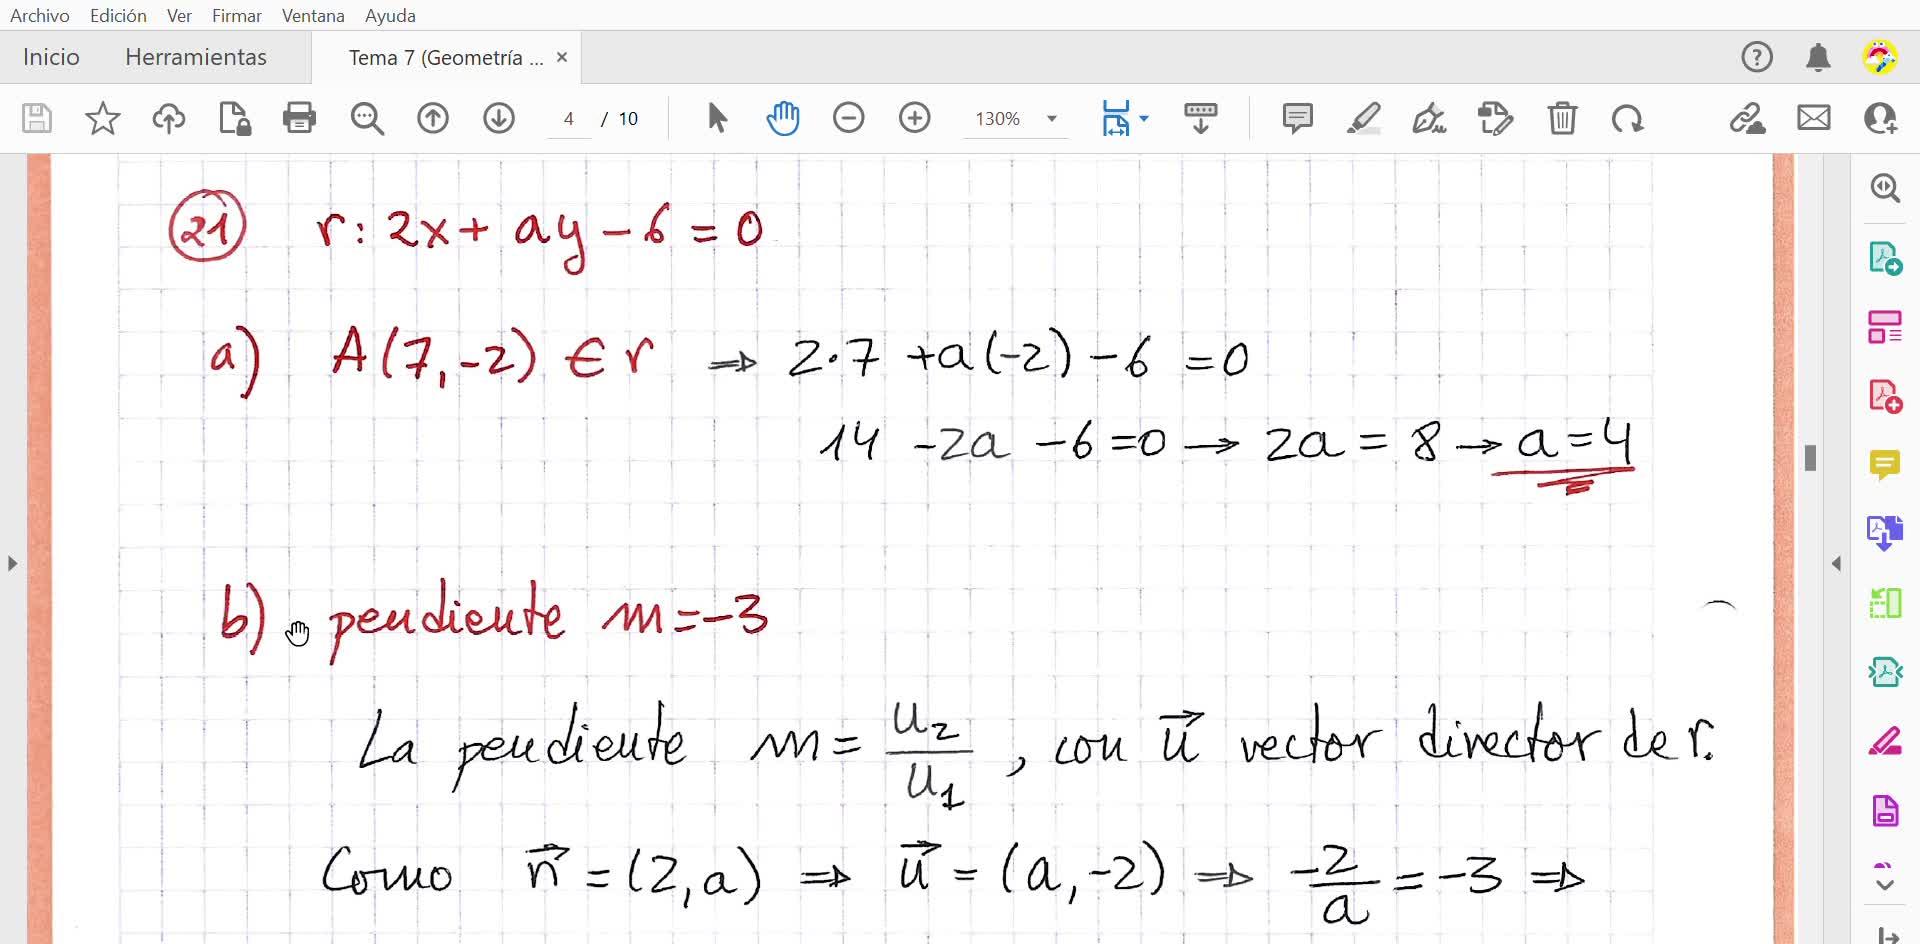 Archivo Edición Ver Firmar Ventana Ayuda
Inicio Herramientas Tema 7 (Geometría ... ×
4 / 10 130%
21 r: 2x + ay - 6 = 0
a) A(7,-2) ∈ r ⇒ 2·7 + a(-2) - 6 = 0
14 - 2a - 6 = 0 → 2a = 8 → a = 4
b) pendiente m = -3
La pendiente m = u₂/u₁, con u⃗ vector director de r.
Como n⃗ = (2,a) ⇒ u⃗ = (a,-2) ⇒ -2/a = -3 ⇒